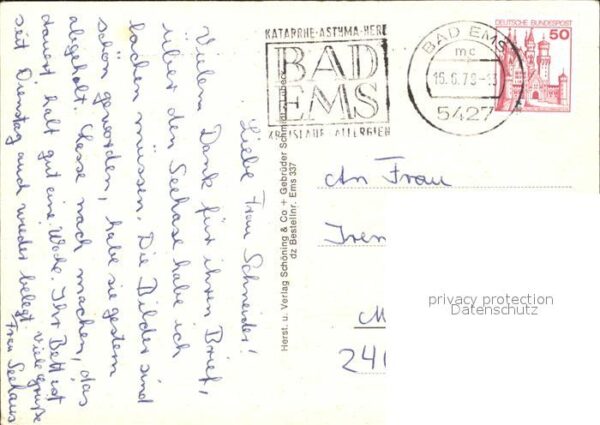 Liebe Frau Schneider!
Vielen Dank für ihren Brief,
über den Seehase habe ich
lachen müssen. Die Bilder sind
schön geworden, habe sie gestern
abgeholt. Lasse nach machen, das
dauert halt gut eine Woche. Ihr Bett ist
seit Dienstag auch wieder belegt. Viele Grüße
Frau Seehaus
Herst. u. Verlag Schöning & Co + Gebrüder Schmidt
dz Bestellnr. Ems 337
KATARRHE-ASTHMA-HERZ
BAD
EMS
KREISLAUF ALLERGIEN
BAD EMS
mc
5427
DEUTSCHE BUNDESPOST
50
An Frau
Iren
M
240
privacy protection
Datenschutz